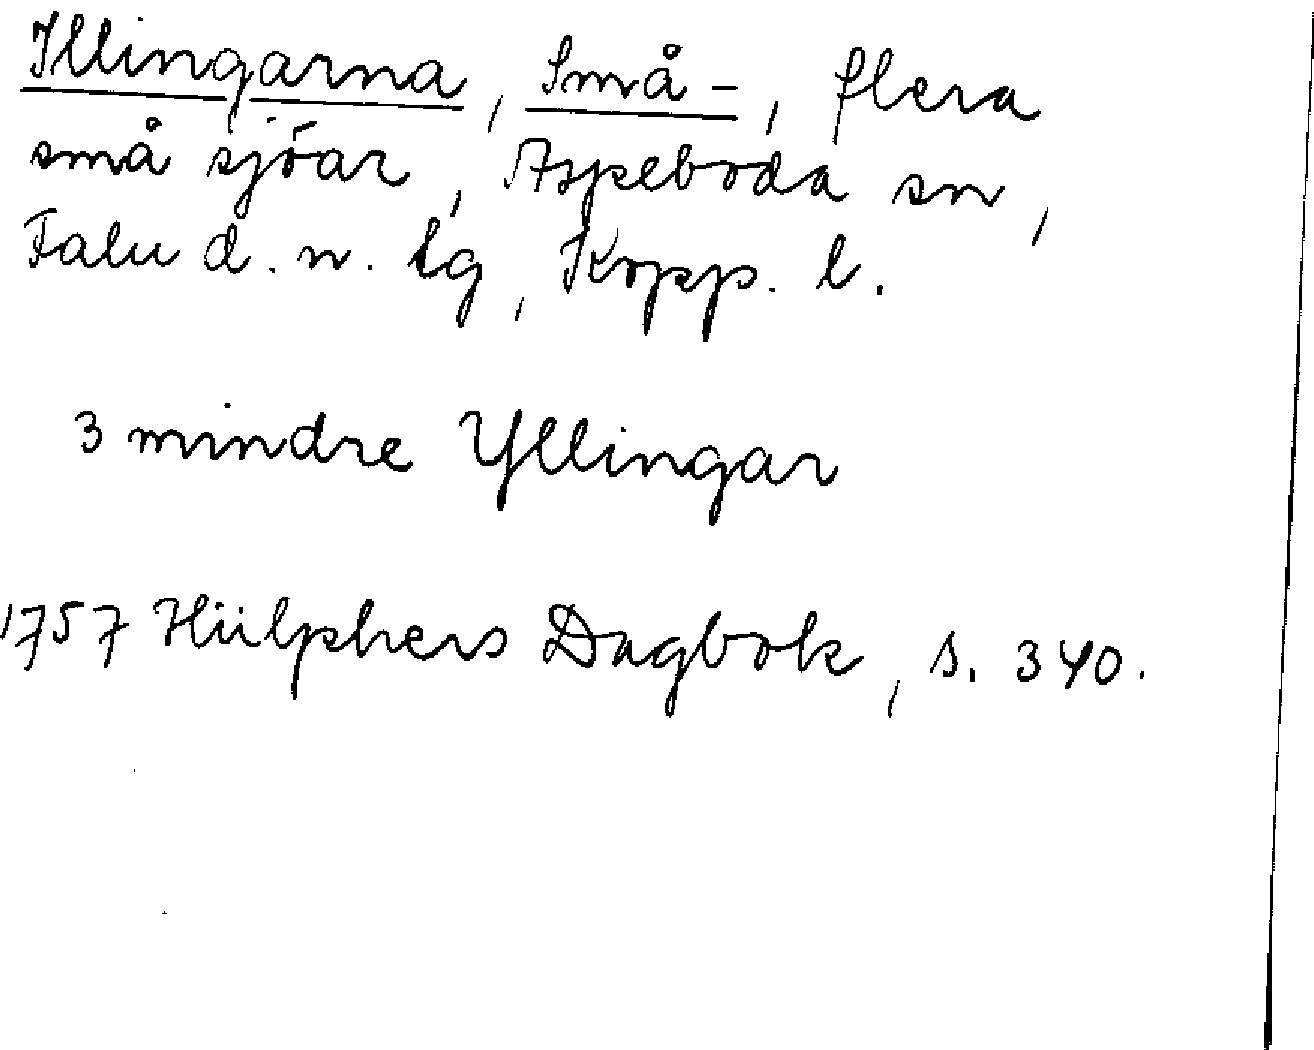 Illingarna, Små-, flera
små sjöar, Aspeboda sn,
Falu d. n. lg, Kopp. l.
3 mindre Yllingar
1757 Hülphers Dagbok, s. 340.